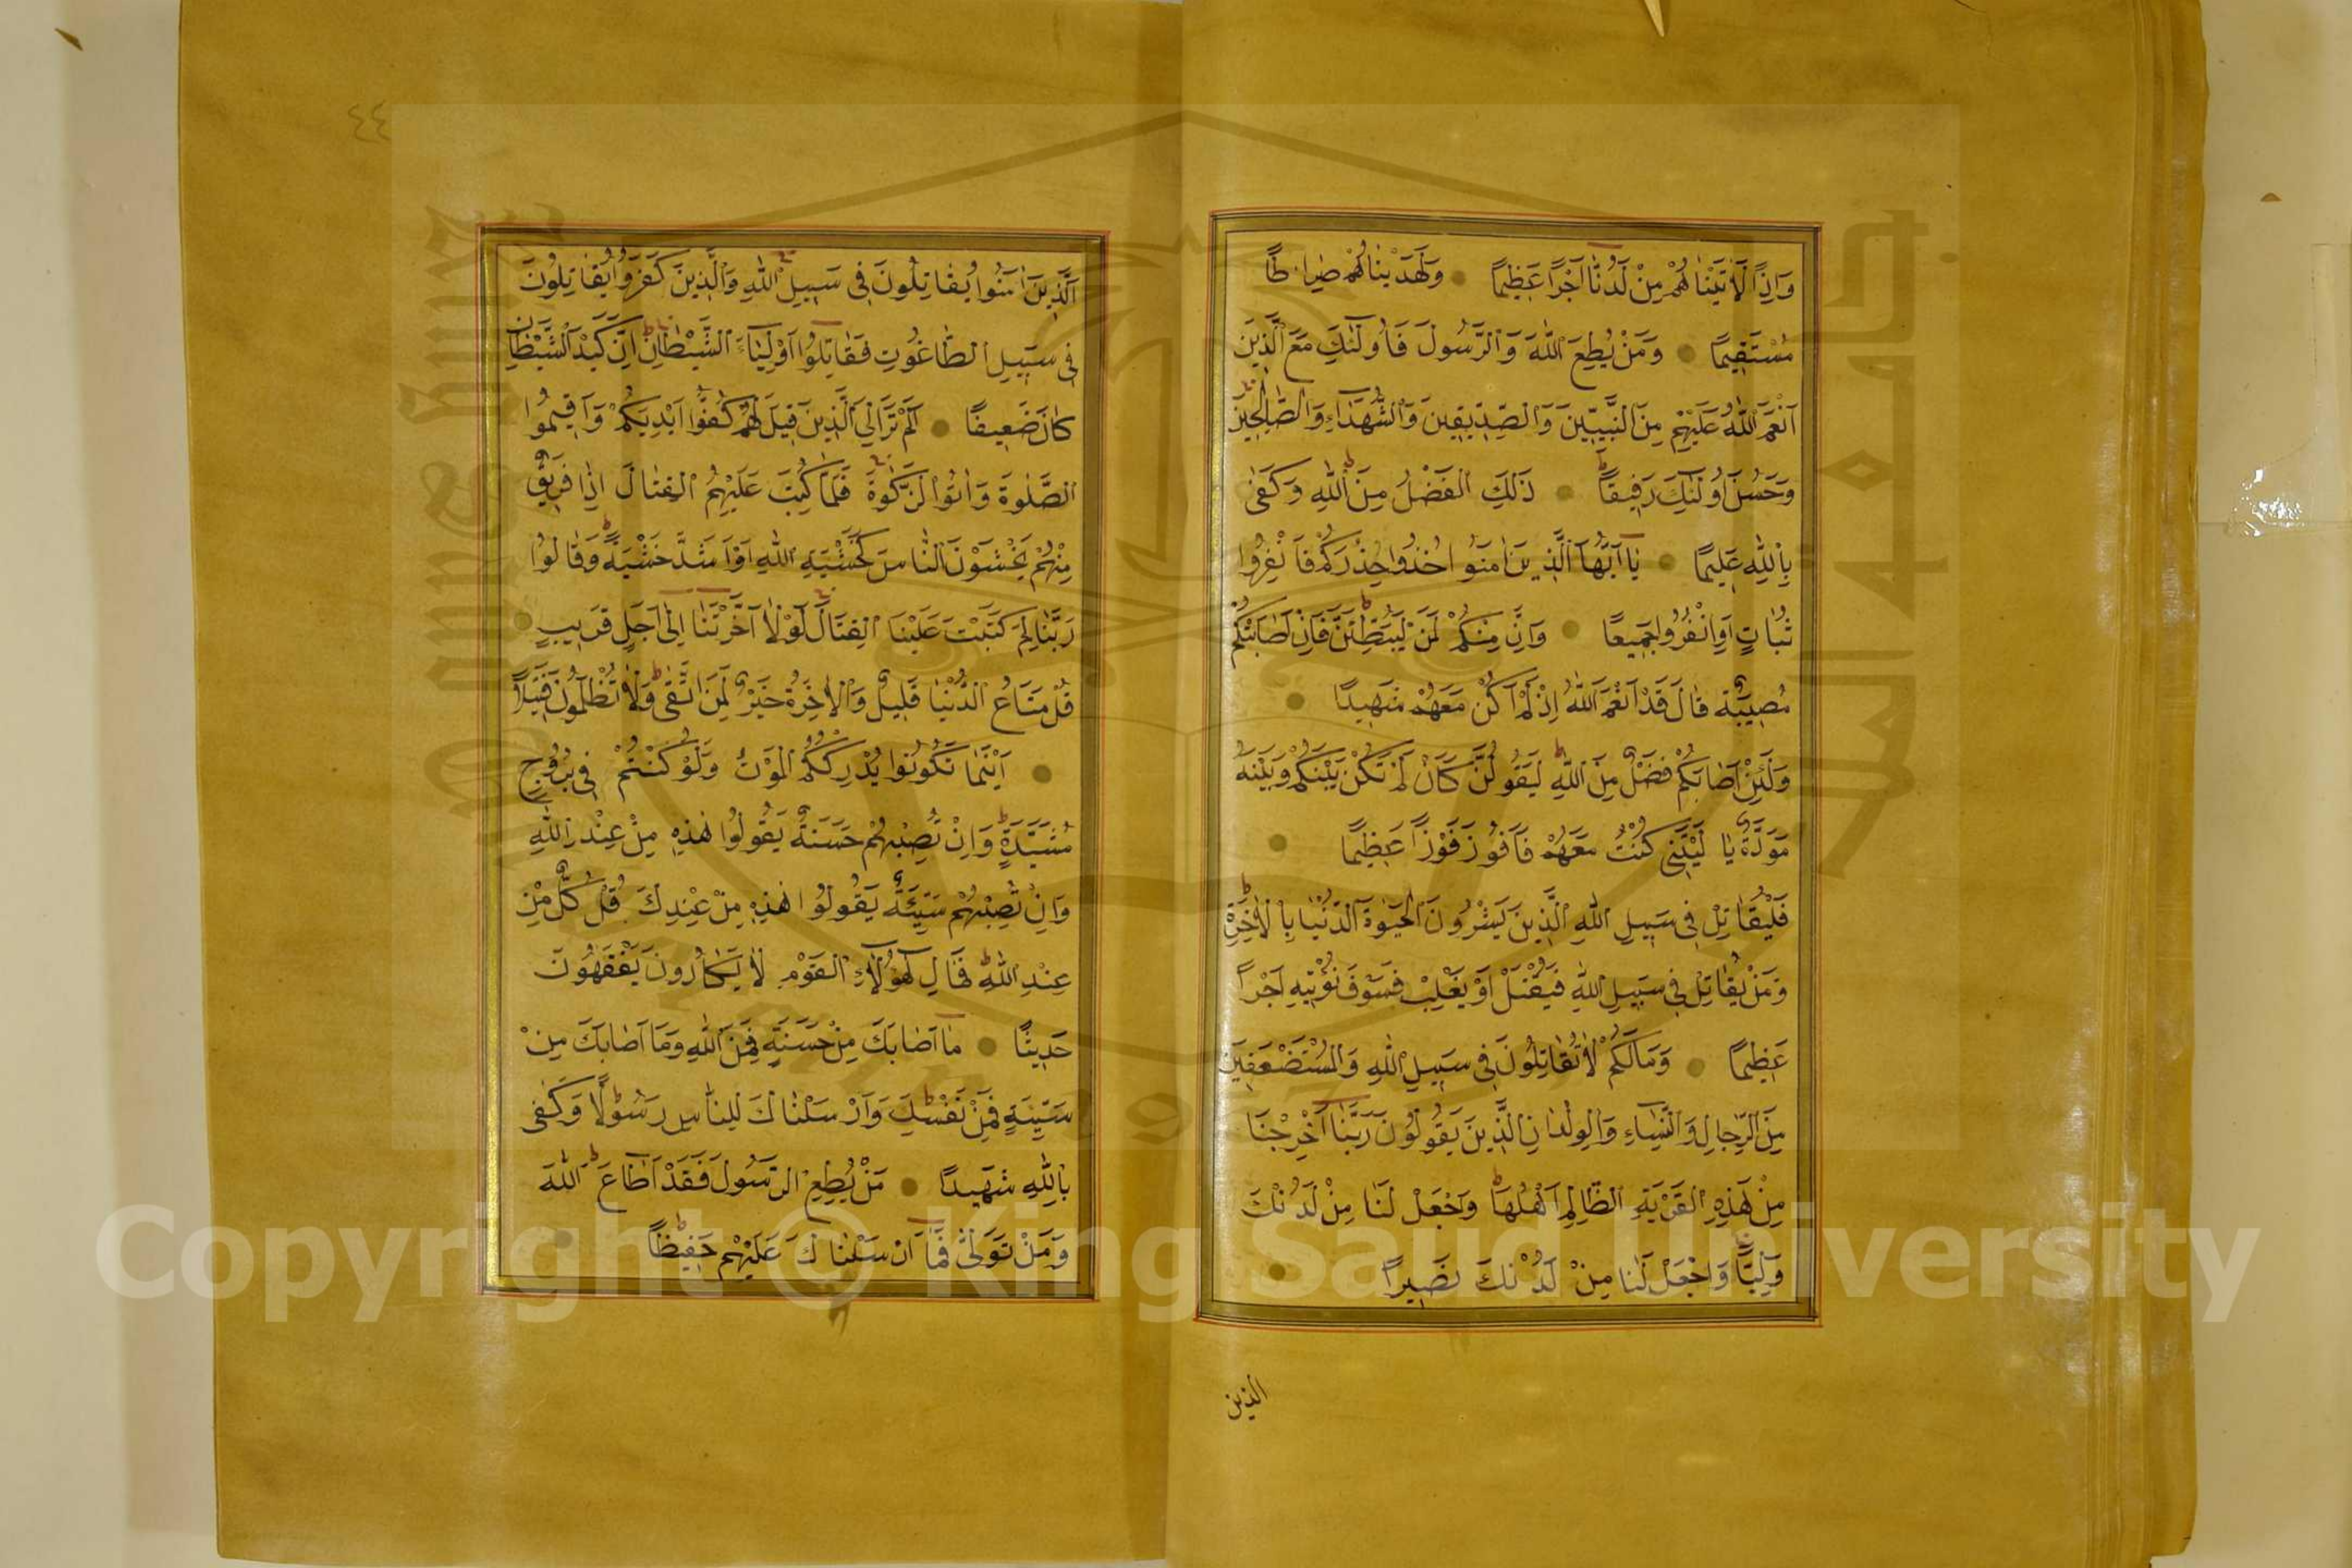 وَاِذًا لَاٰتَيْنَاهُمْ مِنْ لَدُنَّٓا اَجْرًا عَظِيمًا وَلَهَدَيْنَاهُمْ صِرَاطًا
مُسْتَقِيمًا وَمَنْ يُطِعِ اللّٰهَ وَالرَّسُولَ فَاُولٰٓئِكَ مَعَ الَّذِينَ
اَنْعَمَ اللّٰهُ عَلَيْهِمْ مِنَ النَّبِيّٖنَ وَالصِّدّٖيقِينَ وَالشُّهَدَٓاءِ وَالصَّالِحِينَ
وَحَسُنَ اُولٰٓئِكَ رَفِيقًا ذٰلِكَ الْفَضْلُ مِنَ اللّٰهِ وَكَفٰى
بِاللّٰهِ عَلِيمًا يَٓا اَيُّهَا الَّذِينَ اٰمَنُوا خُذُوا حِذْرَكُمْ فَانْفِرُوا
ثُبَاتٍ اَوِ انْفِرُوا جَمِيعًا وَاِنَّ مِنْكُمْ لَمَنْ لَيُبَطِّئَنَّ فَاِنْ اَصَابَتْكُمْ
مُصِيبَةٌ قَالَ قَدْ اَنْعَمَ اللّٰهُ اِذْ لَمْ اَكُنْ مَعَهُمْ شَهِيدًا
وَلَئِنْ اَصَابَكُمْ فَضْلٌ مِنَ اللّٰهِ لَيَقُولَنَّ كَاَنْ لَمْ تَكُنْ بَيْنَكُمْ وَبَيْنَهُ
مَوَدَّةٌ يَا لَيْتَنِي كُنْتُ مَعَهُمْ فَاَفُوزَ فَوْزًا عَظِيمًا
فَلْيُقَاتِلْ فِي سَبِيلِ اللّٰهِ الَّذِينَ يَشْرُونَ الْحَيٰوةَ الدُّنْيَا بِالْاٰخِرَةِ
وَمَنْ يُقَاتِلْ فِي سَبِيلِ اللّٰهِ فَيُقْتَلْ اَوْ يَغْلِبْ فَسَوْفَ نُؤْتِيهِ اَجْرًا
عَظِيمًا وَمَا لَكُمْ لَا تُقَاتِلُونَ فِي سَبِيلِ اللّٰهِ وَالْمُسْتَضْعَفِينَ
مِنَ الرِّجَالِ وَالنِّسَٓاءِ وَالْوِلْدَانِ الَّذِينَ يَقُولُونَ رَبَّنَٓا اَخْرِجْنَا
مِنْ هٰذِهِ الْقَرْيَةِ الظَّالِمِ اَهْلُهَا وَاجْعَلْ لَنَا مِنْ لَدُنْكَ
وَلِيًّا وَاجْعَلْ لَنَا مِنْ لَدُنْكَ نَصِيرًا
الذين
٤٤
اَلَّذِينَ اٰمَنُوا يُقَاتِلُونَ فِي سَبِيلِ اللّٰهِ وَالَّذِينَ كَفَرُوا يُقَاتِلُونَ
فِي سَبِيلِ الطَّاغُوتِ فَقَاتِلُٓوا اَوْلِيَٓاءَ الشَّيْطَانِ اِنَّ كَيْدَ الشَّيْطَانِ
كَانَ ضَعِيفًا اَلَمْ تَرَ اِلَى الَّذِينَ قِيلَ لَهُمْ كُفُّٓوا اَيْدِيَكُمْ وَاَقِيمُوا
الصَّلٰوةَ وَاٰتُوا الزَّكٰوةَ فَلَمَّا كُتِبَ عَلَيْهِمُ الْقِتَالُ اِذَا فَرِيقٌ
مِنْهُمْ يَخْشَوْنَ النَّاسَ كَخَشْيَةِ اللّٰهِ اَوْ اَشَدَّ خَشْيَةً وَقَالُوا
رَبَّنَا لِمَ كَتَبْتَ عَلَيْنَا الْقِتَالَ لَوْلَٓا اَخَّرْتَنَٓا اِلٰٓى اَجَلٍ قَرِيبٍ
قُلْ مَتَاعُ الدُّنْيَا قَلِيلٌ وَالْاٰخِرَةُ خَيْرٌ لِمَنِ اتَّقٰى وَلَا تُظْلَمُونَ فَتِيلًا
اَيْنَمَا تَكُونُوا يُدْرِكْكُمُ الْمَوْتُ وَلَوْ كُنْتُمْ فِي بُرُوجٍ
مُشَيَّدَةٍ وَاِنْ تُصِبْهُمْ حَسَنَةٌ يَقُولُوا هٰذِهِ مِنْ عِنْدِ اللّٰهِ
وَاِنْ تُصِبْهُمْ سَيِّئَةٌ يَقُولُوا هٰذِهِ مِنْ عِنْدِكَ قُلْ كُلٌّ مِنْ
عِنْدِ اللّٰهِ فَمَالِ هٰٓؤُلَٓاءِ الْقَوْمِ لَا يَكَادُونَ يَفْقَهُونَ
حَدِيثًا مَٓا اَصَابَكَ مِنْ حَسَنَةٍ فَمِنَ اللّٰهِ وَمَٓا اَصَابَكَ مِنْ
سَيِّئَةٍ فَمِنْ نَفْسِكَ وَاَرْسَلْنَاكَ لِلنَّاسِ رَسُولًا وَكَفٰى
بِاللّٰهِ شَهِيدًا مَنْ يُطِعِ الرَّسُولَ فَقَدْ اَطَاعَ اللّٰهَ
وَمَنْ تَوَلّٰى فَمَٓا اَرْسَلْنَاكَ عَلَيْهِمْ حَفِيظًا
Copyright © King Saud University